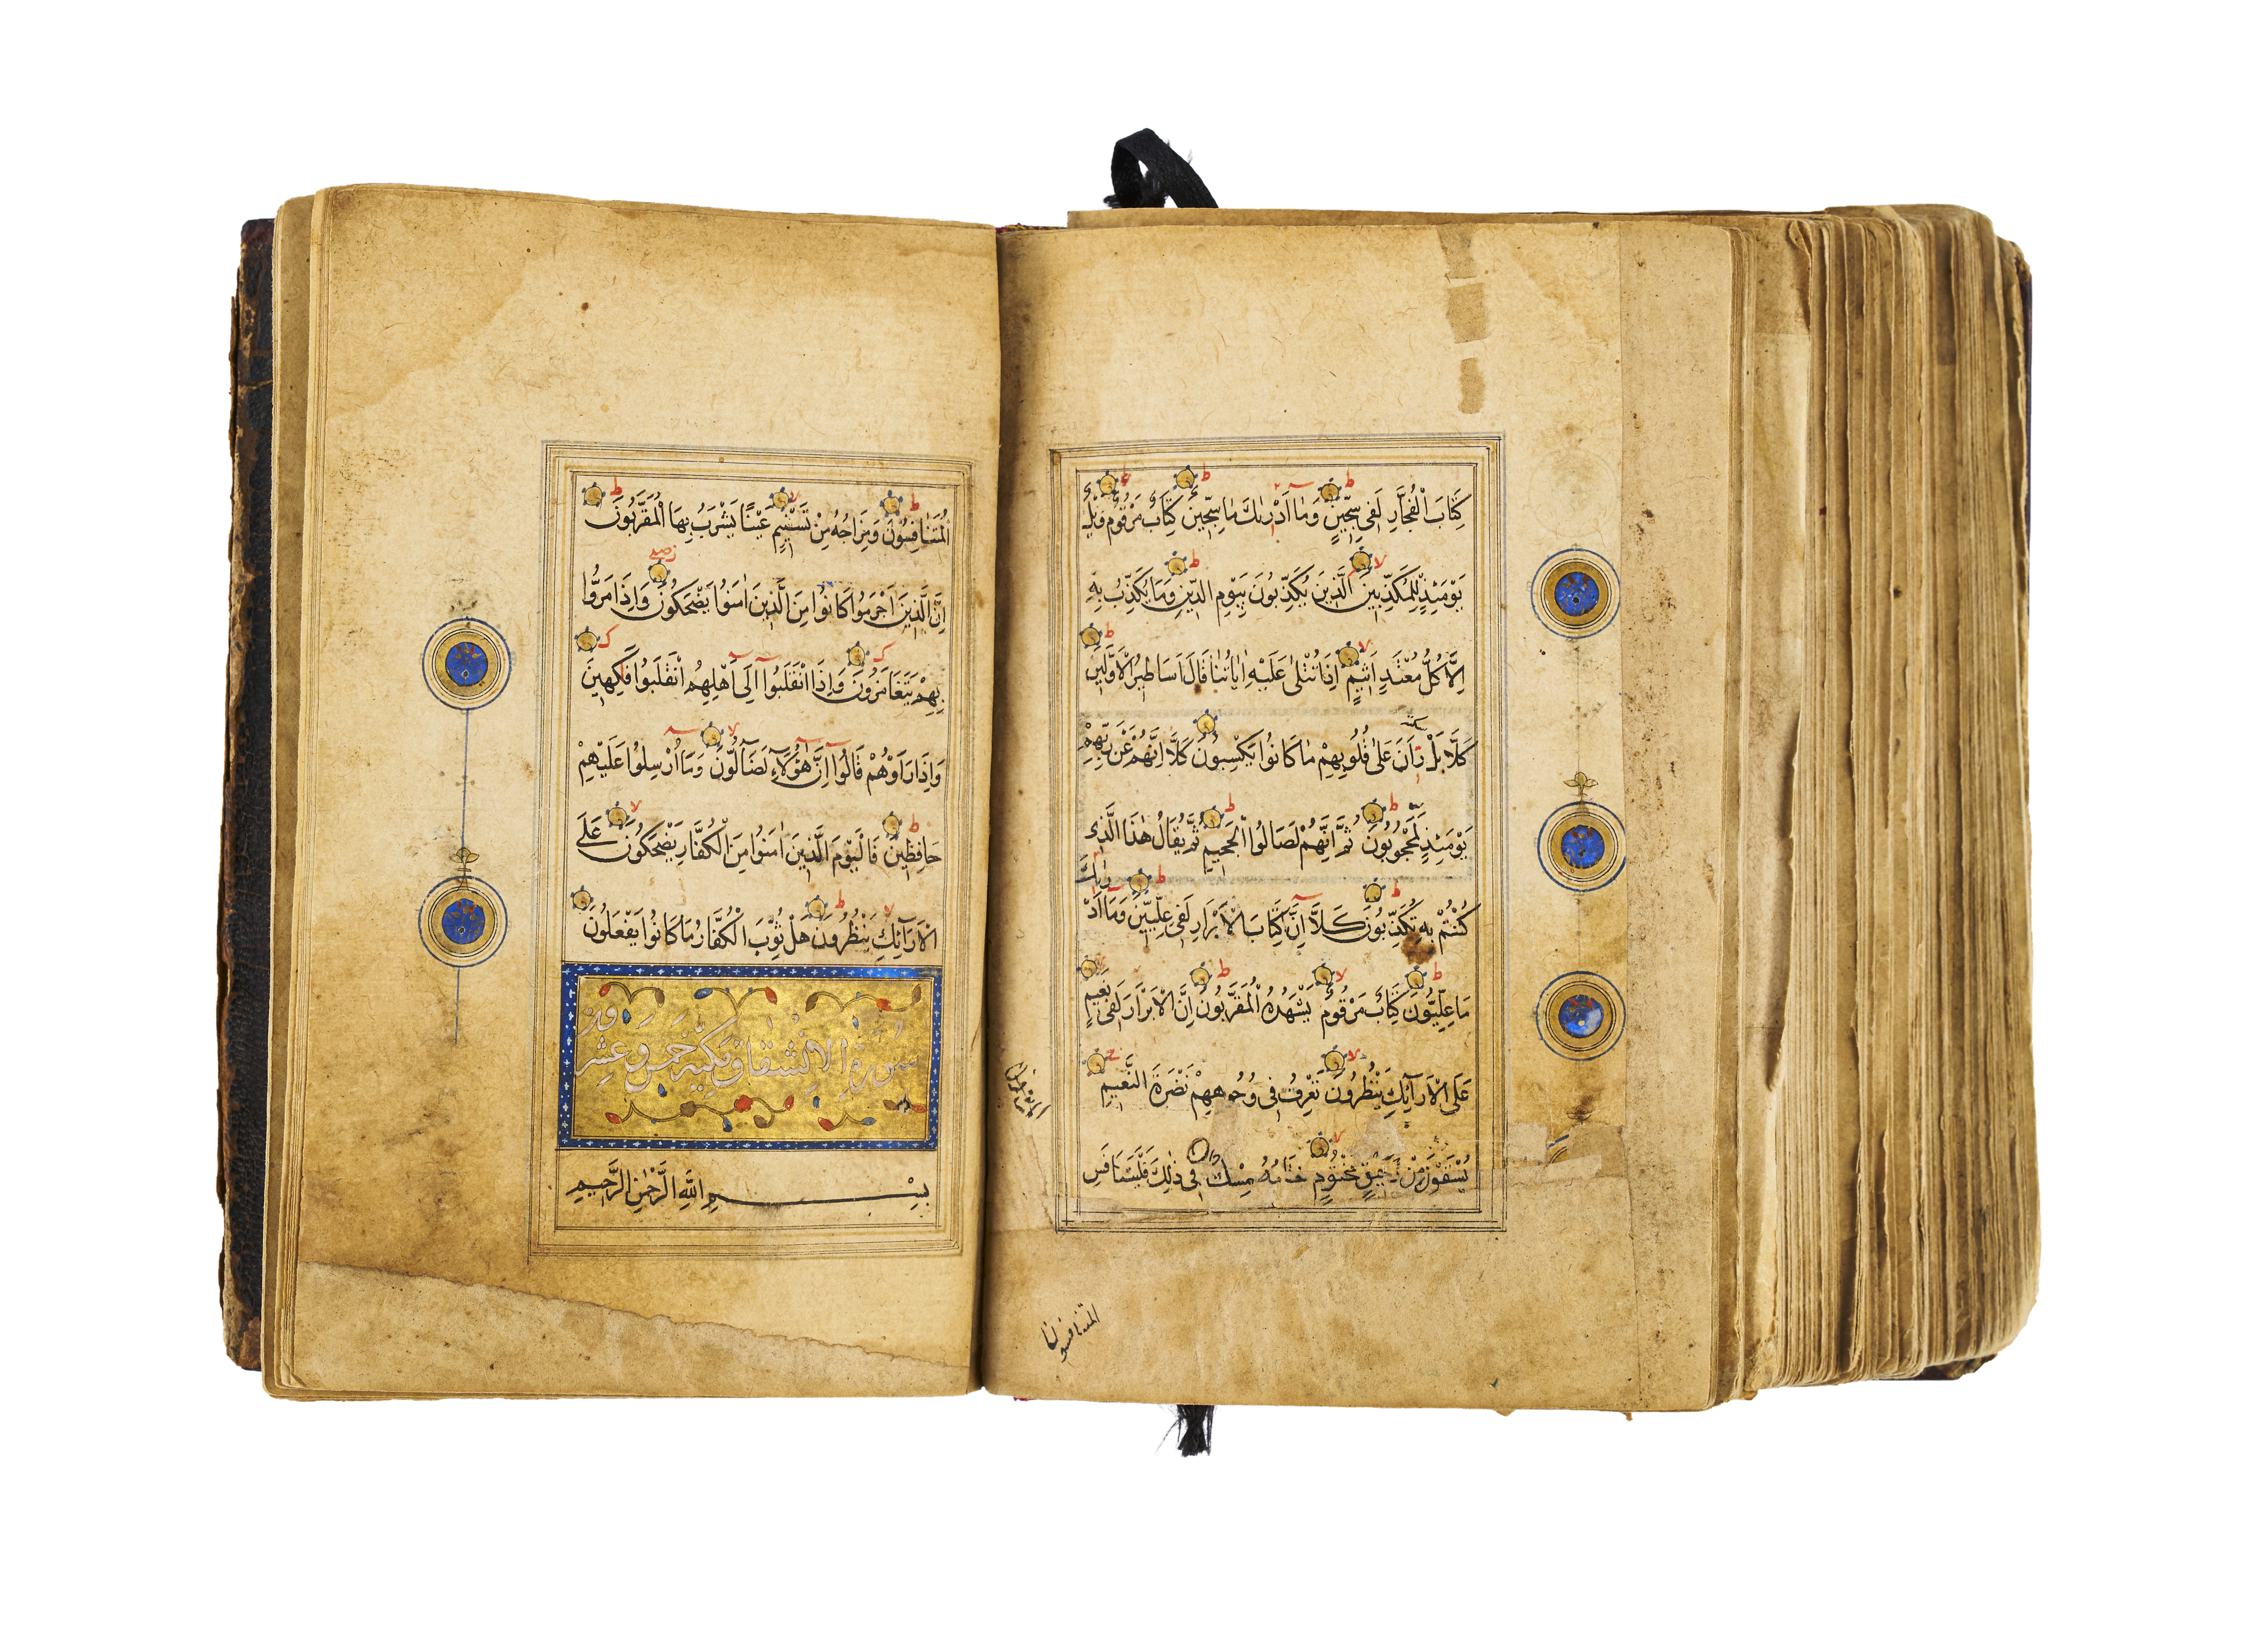 كِتَابَ الْفُجَّارِ لَفِي سِجِّينٍ وَمَا أَدْرٰىكَ مَا سِجِّينٌ كِتَابٌ مَرْقُومٌ وَيْلٌ
يَوْمَئِذٍ لِلْمُكَذِّبِينَ الَّذِينَ يُكَذِّبُونَ بِيَوْمِ الدِّينِ وَمَا يُكَذِّبُ بِهِ
اِلَّا كُلُّ مُعْتَدٍ اَثِيمٍ اِذَا تُتْلٰى عَلَيْهِ اٰيَاتُنَا قَالَ اَسَاطِيرُ الْاَوَّلِينَ
كَلَّا بَلْ رَانَ عَلٰى قُلُوبِهِمْ مَا كَانُوا يَكْسِبُونَ كَلَّا اِنَّهُمْ عَنْ رَبِّهِمْ
يَوْمَئِذٍ لَمَحْجُوبُونَ ثُمَّ اِنَّهُمْ لَصَالُوا الْجَحِيمِ ثُمَّ يُقَالُ هٰذَا الَّذِي
كُنْتُمْ بِهِ تُكَذِّبُونَ كَلَّا اِنَّ كِتَابَ الْاَبْرَارِ لَفِي عِلِّيِّينَ وَمَا اَدْرٰيكَ
مَا عِلِّيُّونَ كِتَابٌ مَرْقُومٌ يَشْهَدُهُ الْمُقَرَّبُونَ اِنَّ الْاَبْرَارَ لَفِي نَعِيمٍ
عَلَى الْاَرَآئِكِ يَنْظُرُونَ تَعْرِفُ فِي وُجُوهِهِمْ نَضْرَةَ النَّعِيمِ
يُسْقَوْنَ مِنْ رَحِيقٍ مَخْتُومٍ خِتَامُهُ مِسْكٌ وَفِي ذٰلِكَ فَلْيَتَنَافَسِ
المتنافسون
المتنافسون
الْمُتَنَافِسُونَ وَمِزَاجُهُ مِنْ تَسْنِيمٍ عَيْنًا يَشْرَبُ بِهَا الْمُقَرَّبُونَ
اِنَّ الَّذِينَ اَجْرَمُوا كَانُوا مِنَ الَّذِينَ اٰمَنُوا يَضْحَكُونَ وَاِذَا مَرُّوا
بِهِمْ يَتَغَامَزُونَ وَاِذَا انْقَلَبُوا اِلٰى اَهْلِهِمُ انْقَلَبُوا فَكِهِينَ
وَاِذَا رَاَوْهُمْ قَالُوا اِنَّ هٰؤُلَاءِ لَضَآلُّونَ وَمَا اُرْسِلُوا عَلَيْهِمْ
حَافِظِينَ فَالْيَوْمَ الَّذِينَ اٰمَنُوا مِنَ الْكُفَّارِ يَضْحَكُونَ عَلَى
الْاَرَآئِكِ يَنْظُرُونَ هَلْ ثُوِّبَ الْكُفَّارُ مَا كَانُوا يَفْعَلُونَ
سُورَةِ الاِنْشِقَاقِ مَكِّيَّة خَمْس وعِشْرُون
بِسْمِ اللّٰهِ الرَّحْمٰنِ الرَّحِيمِ